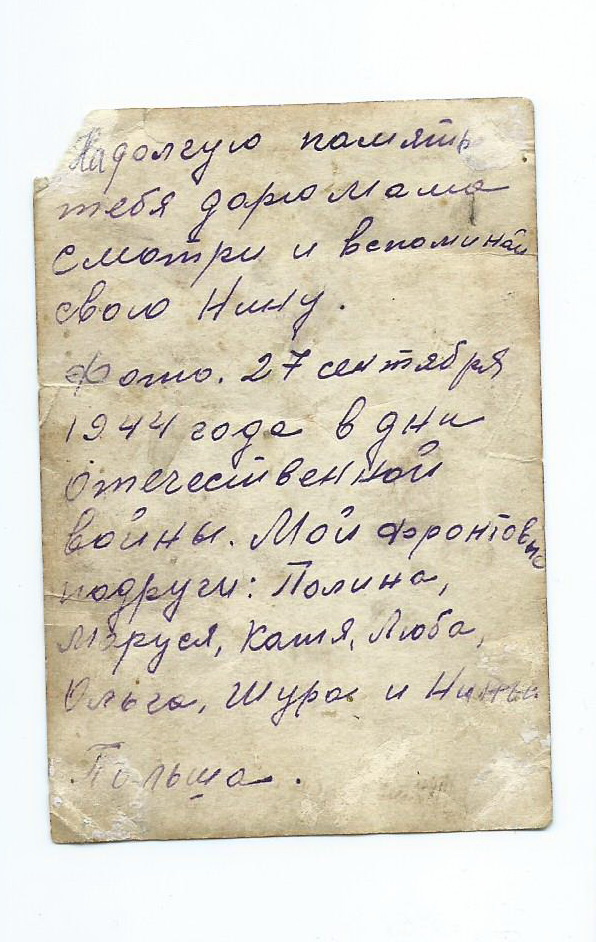 На долгую память
тебя дарю мама
смотри и вспоминай
свою Нину.
Фото. 27 сентября
1944 года в дни
Отечественной
войны. Мои фронтовые
подруги: Полина,
Маруся, Катя, Люба,
Ольга, Шура и Нины
Польша.